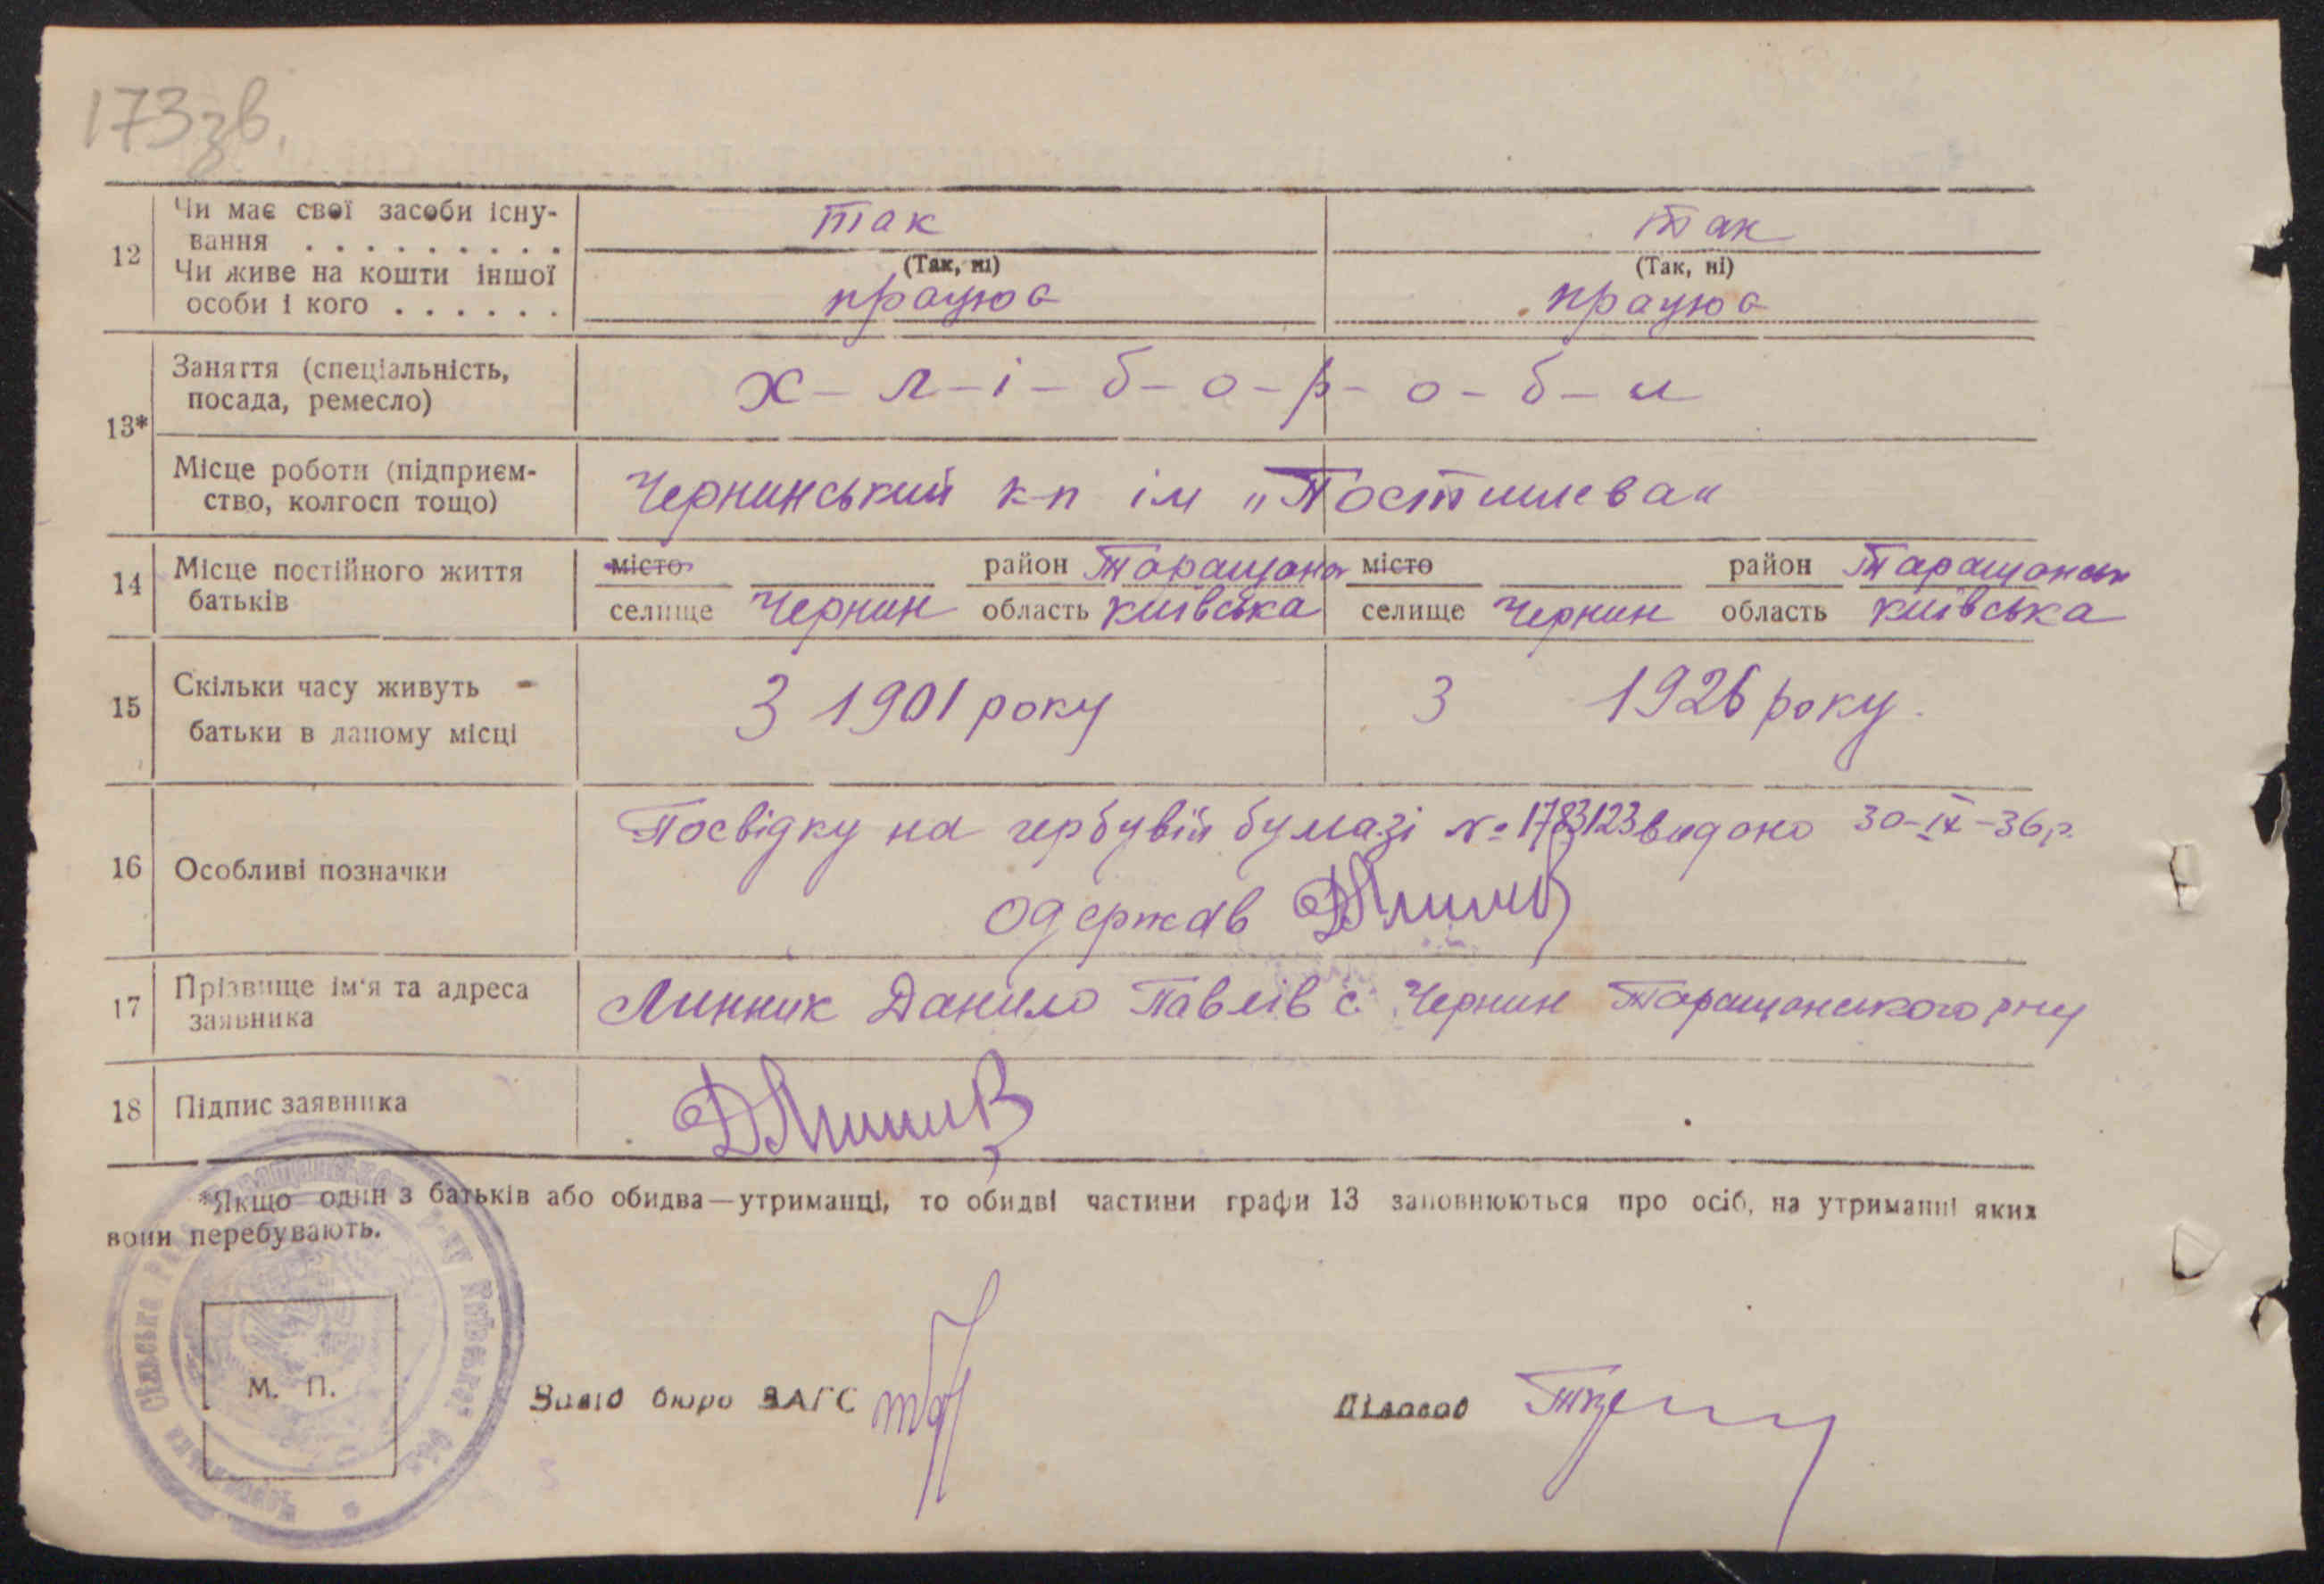 173зв.
12 Чи має свої засоби існу- так так
вання . . . . . . . . .
(Так, ні) (Так, ні)
Чи живе на кошти іншої
особи і кого . . . . . . працює працює
13* Заняття (спеціальність,
посада, ремесло) х-л-і-б-о-р-о-б-и
Місце роботи (підприєм-
ство, колгосп тощо) Чернинський к-п ім „Постишева“
14 Місце постійного життя місто район Таращан місто район Таращанськ
батьків селище Чернин область київська селище Чернин область київська
15 Скільки часу живуть
батьки в даному місці З 1901 року З 1926 року.
16 Особливі позначки Посвідку на гербувій бумазі № 1783123 видано 30-IX-36р.
одержав
17 Прізвище ім'я та адреса
заявника Линник Данило Павлів с. Чернин Таращанського рну
18 Підпис заявника
*Якщо один з батьків або обидва—утриманці, то обидві частини графи 13 заповнюються про осіб, на утриманні яких
вони перебувають.
М. П.
Завід бюро ЗАГС Діловод
Сільська Рада Київської обл.